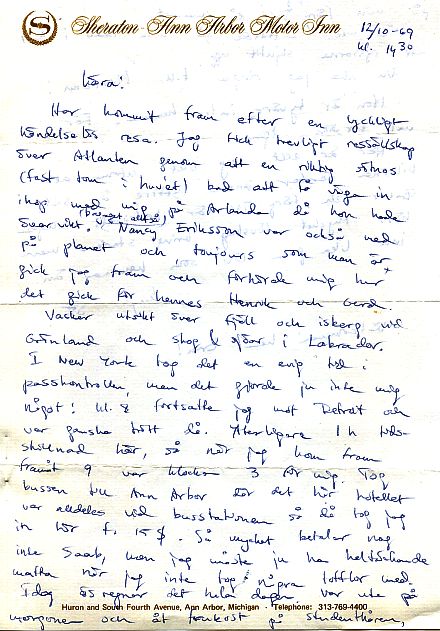 S
Sheraton-Ann Arbor Motor Inn
12/10-69
kl. 1430
Kära!
Har kommit fram efter en lyckligt
händelselös resa. Jag fick trevligt ressällskap
över Atlanten genom att en riktig sötnos
(fast tom i huvet) bad att få väga in
ihop med mig på Arlanda då hon hade
(bagaget alltså)
övervikt. Nancy Eriksson var också med
på planet och, toujours som man är
gick jag fram och förhörde mig hur
det gick för hennes Henrik och Gerd.
Vacker utsikt över fjäll och isberg vid
Grönland och skog & sjöar i Labrador.
I New York tog det en evig tid i
passkontrollen, men det gjorde ju inte mig
något! kl. 8 fortsatte jag mot Detroit och
var ganska trött då. Ytterligare 1 h tids-
skillnad här, så när jag kom fram
framåt 9 var klockan 3 för mig. Tog
bussen till Ann Arbor där det här hotellet
var alldeles vid busstationen så då tog jag
in här f. 15 $. Så mycket betalar nog
inte Saab, men jag måste ju ha heltäckande
matta när jag inte tog några tofflor med.
Idag ösregnar det hela dagen var ute på
morgonen och åt frukost på studenthaken,
Huron and South Fourth Avenue, Ann Arbor, Michigan Telephone: 313-769-4400